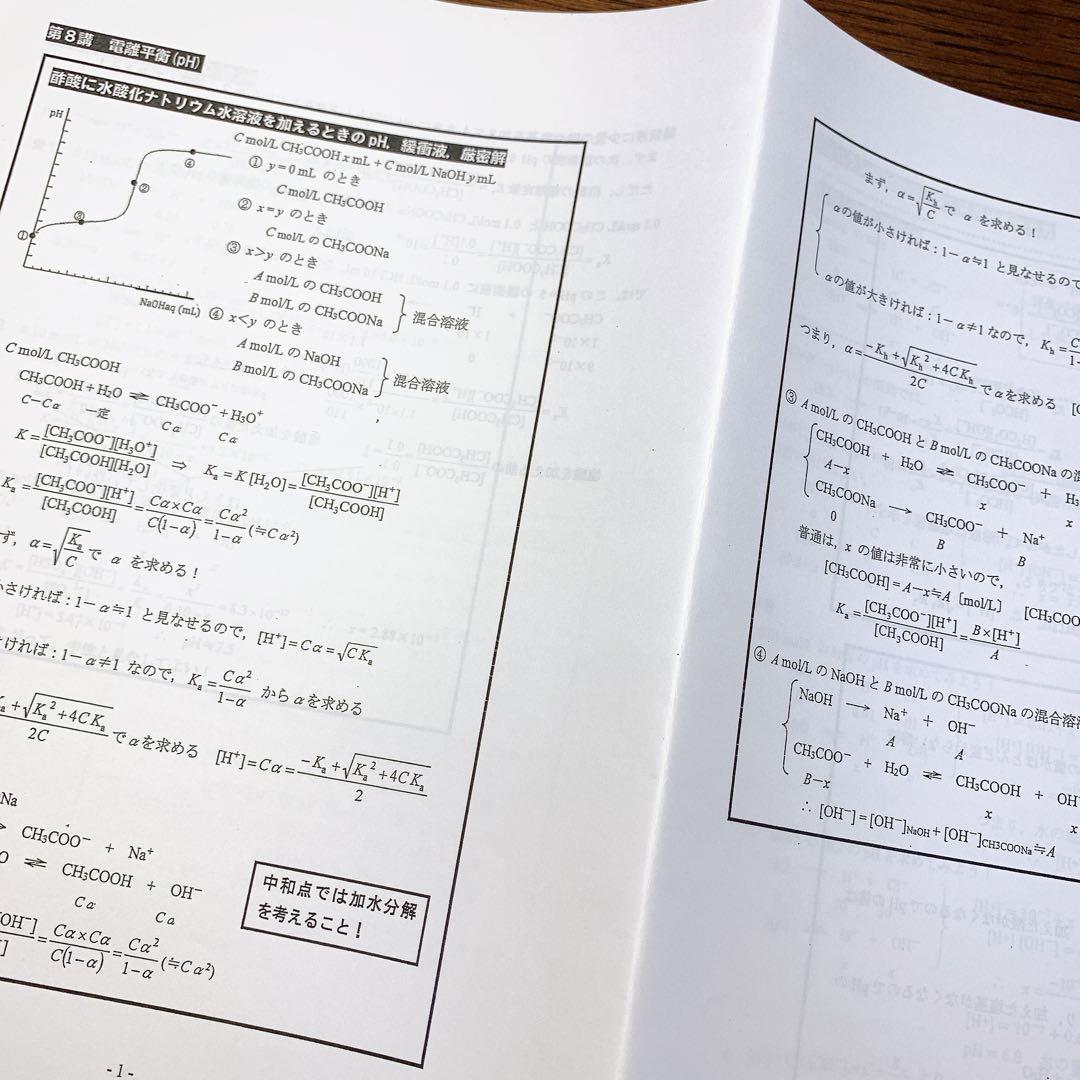 第8講 電離平衡(pH)
酢酸に水酸化ナトリウム水溶液を加えるときのpH，緩衝液，厳密解
pH
C mol/L CH₃COOH x mL + C mol/L NaOH y mL
① y=0 mL のとき
C mol/L CH₃COOH
② x=y のとき
C mol/L の CH₃COONa
③ x>y のとき
A mol/L の CH₃COOH
B mol/L の CH₃COONa
混合溶液
④ x<y のとき
A mol/L の NaOH
B mol/L の CH₃COONa
混合溶液
①
②
③
④
NaOHaq (mL)
C mol/L CH₃COOH
CH₃COOH + H₂O ⇌ CH₃COO⁻ + H₃O⁺
C−Cα 一定 Cα Cα
K = [CH₃COO⁻][H₃O⁺]/[CH₃COOH][H₂O] ⇒ Kₐ = K[H₂O] = [CH₃COO⁻][H⁺]/[CH₃COOH]
Kₐ = [CH₃COO⁻][H⁺]/[CH₃COOH] = Cα×Cα/C(1−α) = Cα²/1−α (≒Cα²)
ず，α=√(Kₐ/C) で α を求める！
さければ：1−α≒1 と見なせるので，[H⁺]=Cα=√(CKₐ)
ければ：1−α≠1 なので，Kₐ=Cα²/1−α からαを求める
+√(Kₐ²+4CKₐ)/2C でαを求める [H⁺]=Cα=−Kₐ+√(Kₐ²+4CKₐ)/2
Na
CH₃COO⁻ + Na⁺
O ⇌ CH₃COOH + OH⁻
Cα Cα
OH⁻] = Cα×Cα/C(1−α) = Cα²/1−α (≒Cα²)
中和点では加水分解
を考えること！
- 1 -
まず，α=√(Kₕ/C) で α を求める！
αの値が小さければ：1−α≒1 と見なせるので
αの値が大きければ：1−α≠1 なので，Kₕ=
つまり，α=−Kₕ+√(Kₕ²+4CKₕ)/2C でαを求める
③ A mol/L の CH₃COOH と B mol/L の CH₃COONa の混
CH₃COOH + H₂O ⇌ CH₃COO⁻ + H₃
A−x x x
CH₃COONa ⟶ CH₃COO⁻ + Na⁺
0 B B
普通は，x の値は非常に小さいので，
[CH₃COOH]=A−x≒A〔mol/L〕 [CH₃COO
Kₐ = [CH₃COO⁻][H⁺]/[CH₃COOH] = B×[H⁺]/A
④ A mol/L の NaOH と B mol/L の CH₃COONa の混合溶
NaOH ⟶ Na⁺ + OH⁻
A A
CH₃COO⁻ + H₂O ⇌ CH₃COOH + OH
B−x x x
∴ [OH⁻]=[OH⁻]NaOH+[OH⁻]CH3COONa≒A